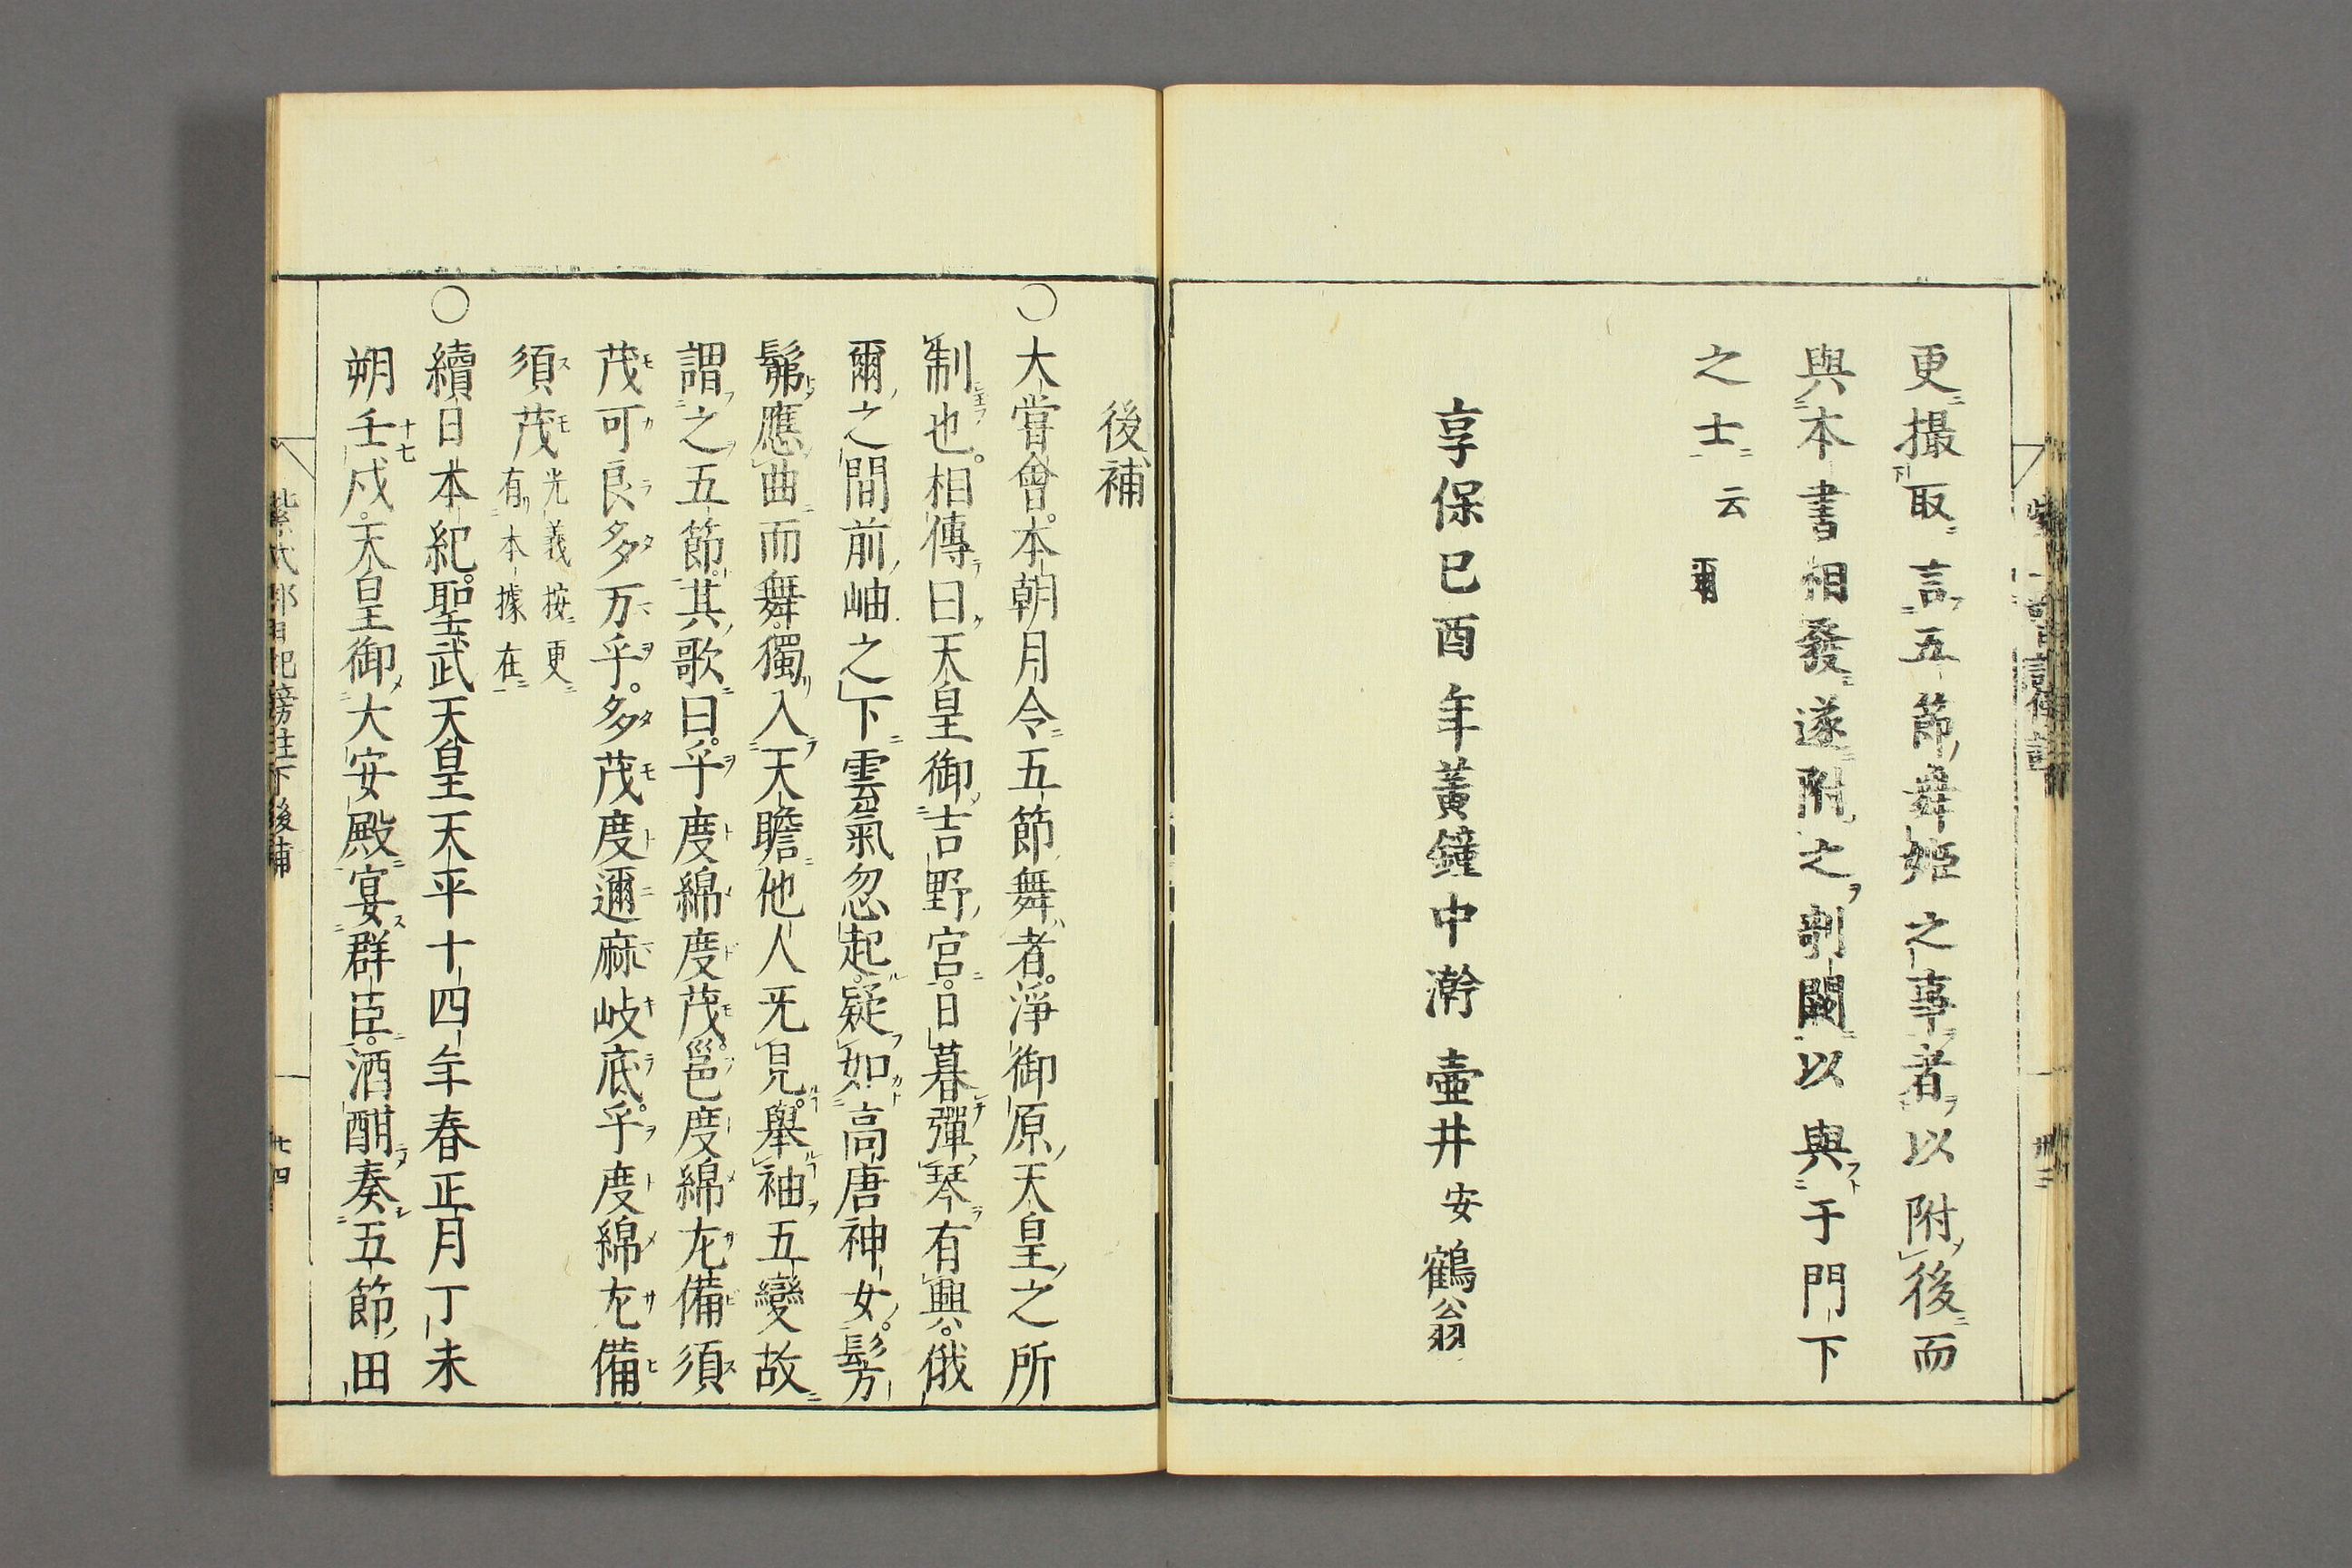 更撮取言五節舞姫之事者以附後而
與本書相發遂附之剞闕以與于門下
之士云爾
享保已酉年黃鐘中澣 壷井安鶴翁
後補
○大嘗會本朝月令五節舞者。淨御原天皇之所
制也。相傳曰天皇御吉野宮。日暮彈琴有興。俄
爾之間前岫之下雲氣忽起。疑如高唐神女。髣
髴應曲而舞。獨入天瞻他人旡見。舉袖五變故
謂之五節。其歌曰。乎度綿度茂。邕度綿左備須
茂可良多万乎。多茂度邇麻岐底。乎度綿左備
須茂光義按更有本據在
○續日本紀。聖武天皇天平十四年春正月丁未
朔壬戍。天皇御大安殿宴群臣。酒酣奏五節田
十七
紫式部日記傍註下後補
廿四